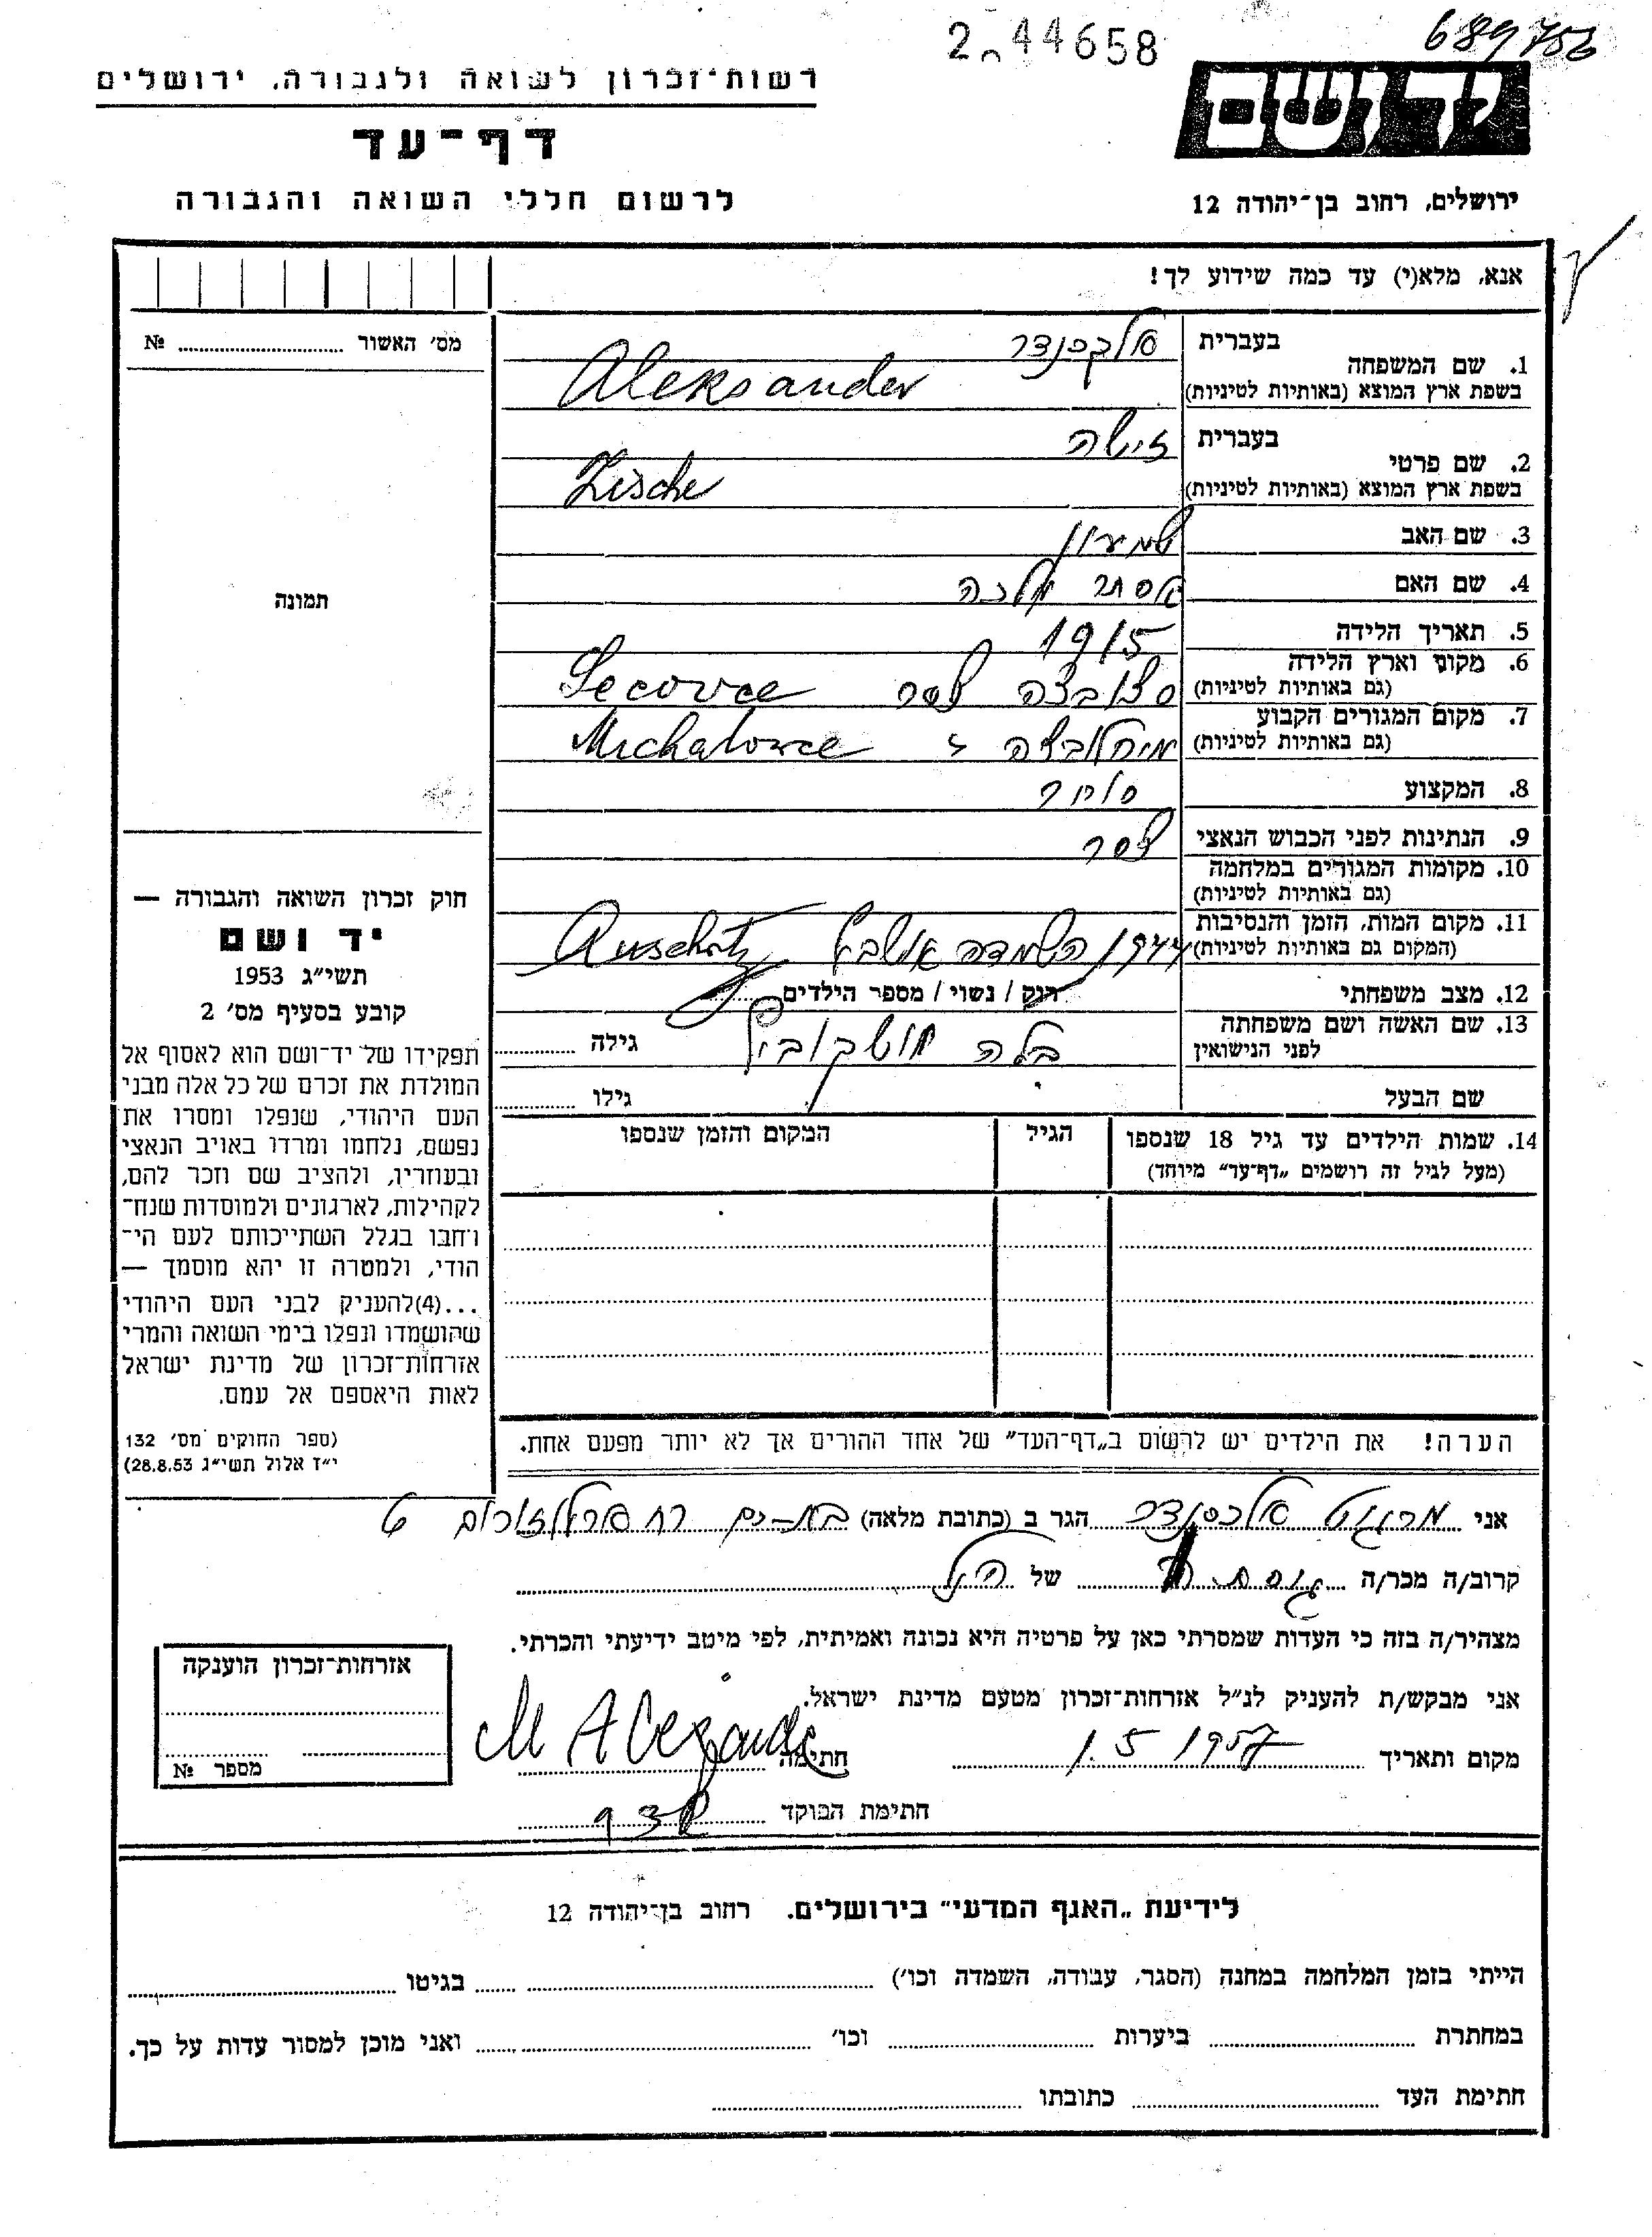 2 44658
689756
רשות־זכרון לשואה ולגבורה, ירושלים
יד ושם
דף־עד
לרשום חללי השואה והגבורה
ירושלים, רחוב בן־יהודה 12
אנא, מלא(י) עד כמה שידוע לך!
מס׳ האשור № 
תמונה
1. שם המשפחה בעברית אלכסנדר
בשפת ארץ המוצא (באותיות לטיניות) Aleksander
2. שם פרטי בעברית זישה
בשפת ארץ המוצא (באותיות לטיניות) Zische
3. שם האב שמעון
4. שם האם אסתר מלכה
5. תאריך הלידה 1915
6. מקום וארץ הלידה (גם באותיות לטיניות) סצובצה צסר Secovce
7. מקום המגורים הקבוע (גם באותיות לטיניות) מיהלובצה Michalovce
8. המקצוע סוחר
9. הנתינות לפני הכבוש הנאצי צסר
10. מקומות המגורים במלחמה (גם באותיות לטיניות)
11. מקום המות, הזמן והנסיבות (המקום גם באותיות לטיניות) 1944 השמדה Auschwitz
12. מצב משפחתי רוק / נשוי / מספר הילדים
13. שם האשה ושם משפחתה לפני הנישואין בלה גילה
שם הבעל גילו
14. שמות הילדים עד גיל 18 שנספו הגיל המקום והזמן שנספו
(מעל לגיל זה רושמים „דף־עד״ מיוחד)
הערה! את הילדים יש לרשום ב„דף־העד״ של אחד ההורים אך לא יותר מפעם אחת.
חוק זכרון השואה והגבורה —
יד ושם
תשי״ג 1953
קובע בסעיף מס׳ 2
תפקידו של יד־ושם הוא לאסוף אל
המולדת את זכרם של כל אלה מבני
העם היהודי, שנפלו ומסרו את
נפשם, נלחמו ומרדו באויב הנאצי
ובעוזריו, ולהציב שם וזכר להם,
לקהילות, לארגונים ולמוסדות שנח־
רבו בגלל השתייכותם לעם הי־
הודי, ולמטרה זו יהא מוסמך —
...(4)להעניק לבני העם היהודי
שהושמדו ונפלו בימי השואה והמרי
אזרחות־זכרון של מדינת ישראל
לאות היאספם אל עמם.
(ספר החוקים מס׳ 132
י״ז אלול תשי״ג 28.8.53)
אני מרגוט אלכסנדר הגר ב (כתובת מלאה) בת-ים רח
קרוב/ה מכר/ה גיסתה של הנ״ל
מצהיר/ה בזה כי העדות שמסרתי כאן על פרטיה היא נכונה ואמיתית, לפי מיטב ידיעתי והכרתי.
אני מבקש/ת להעניק לנ״ל אזרחות־זכרון מטעם מדינת ישראל.
מקום ותאריך 1.5 1957 חתימה M Alexander
חתימת הפוקד
אזרחות־זכרון הוענקה
מספר №
לידיעת „האגף המדעי״ בירושלים. רחוב בן־יהודה 12
הייתי בזמן המלחמה במחנה (הסגר, עבודה, השמדה וכו׳) בגיטו
במחתרת ביערות וכו׳ ואני מוכן למסור עדות על כך.
חתימת העד כתובתו